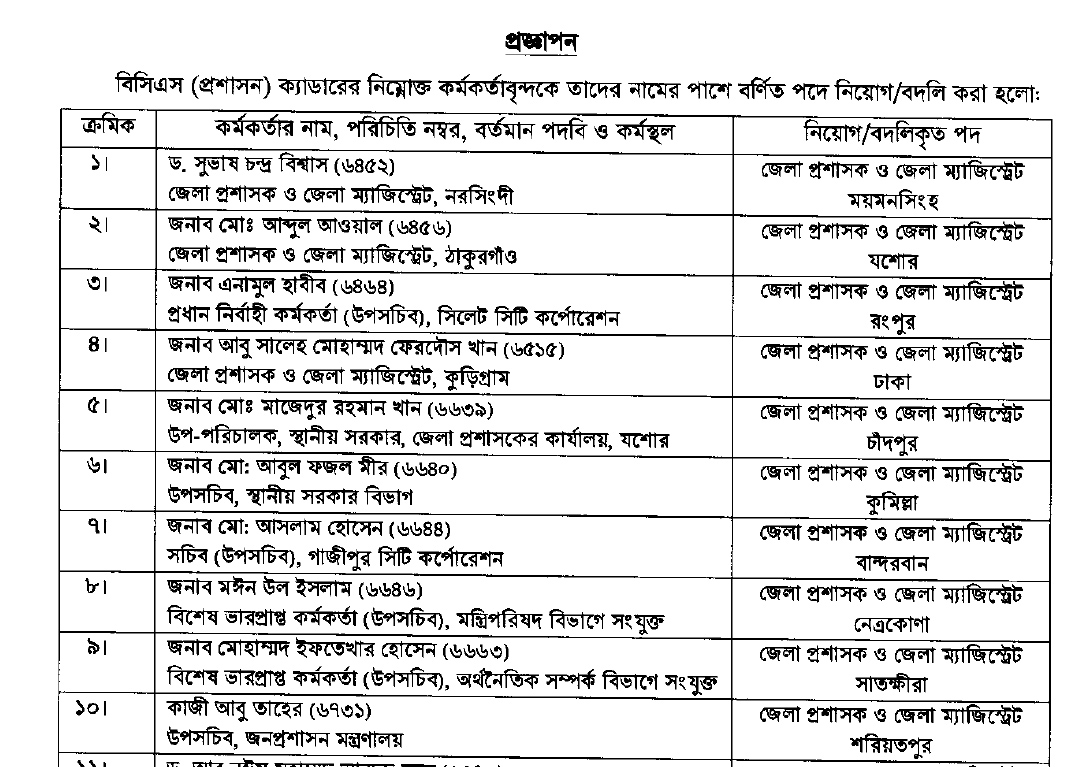 প্রজ্ঞাপন
বিসিএস (প্রশাসন) ক্যাডারের নিম্নোক্ত কর্মকর্তাবৃন্দকে তাদের নামের পাশে বর্ণিত পদে নিয়োগ/বদলি করা হলো:
ক্রমিক কর্মকর্তার নাম, পরিচিতি নম্বর, বর্তমান পদবি ও কর্মস্থল নিয়োগ/বদলিকৃত পদ
১। ড. সুভাষ চন্দ্র বিশ্বাস (৬৪৫২) জেলা প্রশাসক ও জেলা ম্যাজিস্ট্রেট
জেলা প্রশাসক ও জেলা ম্যাজিস্ট্রেট, নরসিংদী ময়মনসিংহ
২। জনাব মোঃ আব্দুল আওয়াল (৬৪৫৬) জেলা প্রশাসক ও জেলা ম্যাজিস্ট্রেট
জেলা প্রশাসক ও জেলা ম্যাজিস্ট্রেট, ঠাকুরগাঁও যশোর
৩। জনাব এনামুল হাবীব (৬৪৬৪) জেলা প্রশাসক ও জেলা ম্যাজিস্ট্রেট
প্রধান নির্বাহী কর্মকর্তা (উপসচিব), সিলেট সিটি কর্পোরেশন রংপুর
৪। জনাব আবু সালেহ মোহাম্মদ ফেরদৌস খান (৬৫১৫) জেলা প্রশাসক ও জেলা ম্যাজিস্ট্রেট
জেলা প্রশাসক ও জেলা ম্যাজিস্ট্রেট, কুড়িগ্রাম ঢাকা
৫। জনাব মোঃ মাজেদুর রহমান খান (৬৬৩৯) জেলা প্রশাসক ও জেলা ম্যাজিস্ট্রেট
উপ-পরিচালক, স্থানীয় সরকার, জেলা প্রশাসকের কার্যালয়, যশোর চাঁদপুর
৬। জনাব মো: আবুল ফজল মীর (৬৬৪০) জেলা প্রশাসক ও জেলা ম্যাজিস্ট্রেট
উপসচিব, স্থানীয় সরকার বিভাগ কুমিল্লা
৭। জনাব মো: আসলাম হোসেন (৬৬৪৪) জেলা প্রশাসক ও জেলা ম্যাজিস্ট্রেট
সচিব (উপসচিব), গাজীপুর সিটি কর্পোরেশন বান্দরবান
৮। জনাব মঈন উল ইসলাম (৬৬৪৬) জেলা প্রশাসক ও জেলা ম্যাজিস্ট্রেট
বিশেষ ভারপ্রাপ্ত কর্মকর্তা (উপসচিব), মন্ত্রিপরিষদ বিভাগে সংযুক্ত নেত্রকোণা
৯। জনাব মোহাম্মদ ইফতেখার হোসেন (৬৬৬৩) জেলা প্রশাসক ও জেলা ম্যাজিস্ট্রেট
বিশেষ ভারপ্রাপ্ত কর্মকর্তা (উপসচিব), অর্থনৈতিক সম্পর্ক বিভাগে সংযুক্ত সাতক্ষীরা
১০। কাজী আবু তাহের (৬৭৩১) জেলা প্রশাসক ও জেলা ম্যাজিস্ট্রেট
উপসচিব, জনপ্রশাসন মন্ত্রণালয় শরিয়তপুর